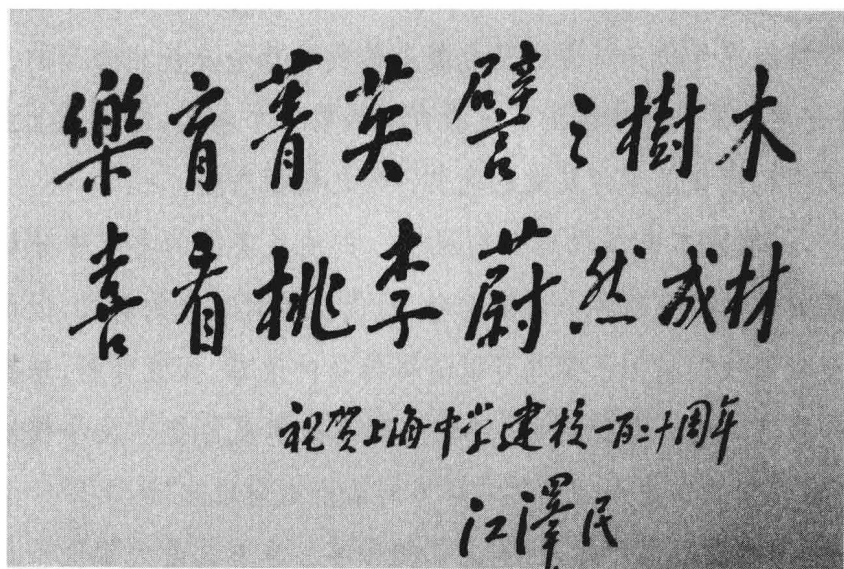 樂育菁英譬之樹木
喜看桃李蔚然成材
祝贺上海中学建校一百二十周年
江澤民